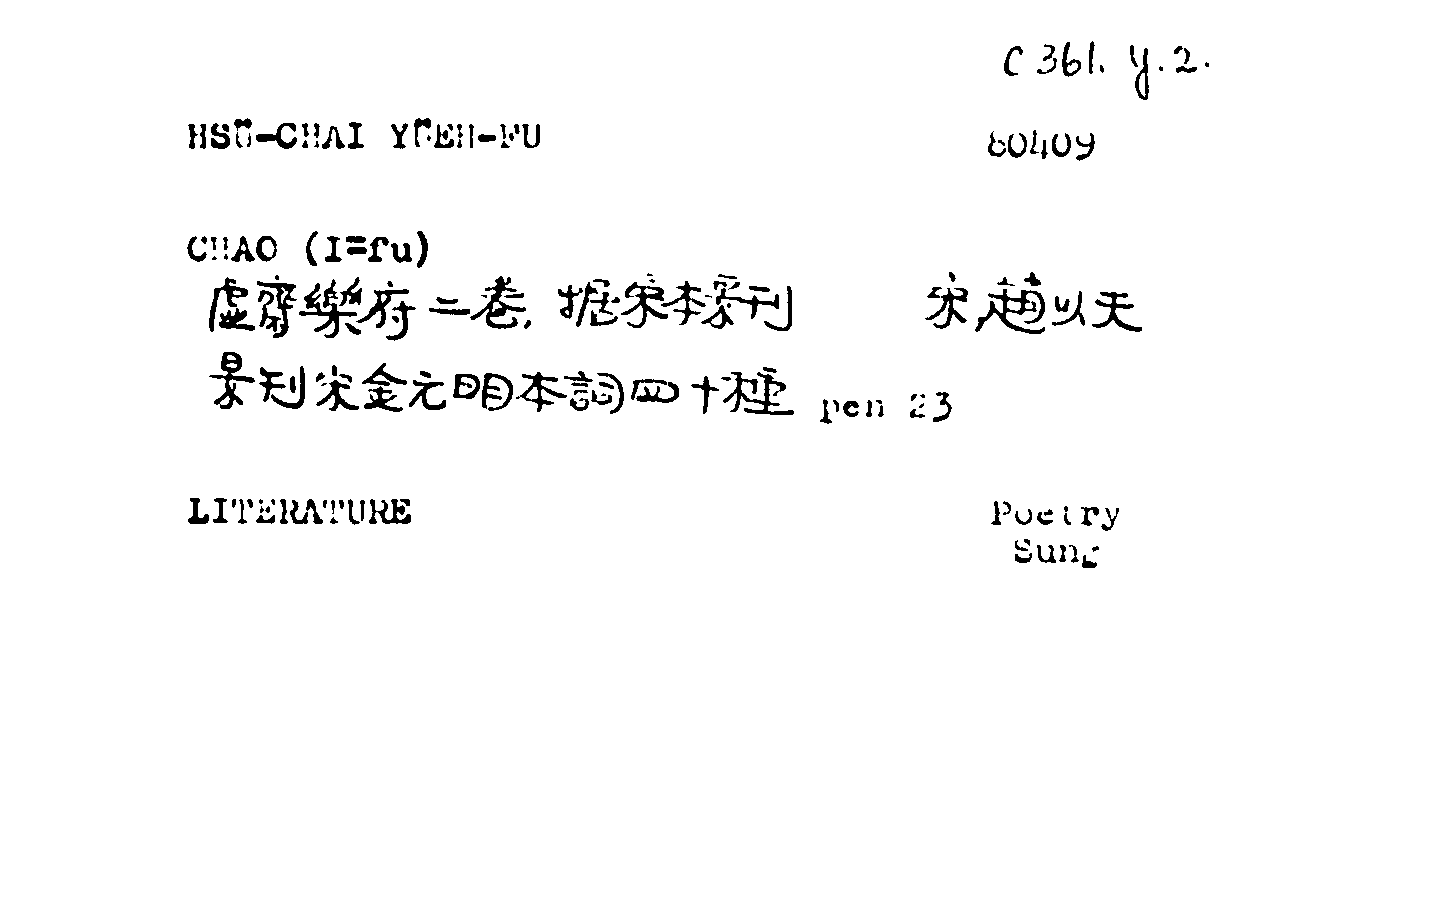 C 361. y. 2.
HSÜ-CHAI YÜEH-FU 80409
CHAO (I=fu)
虛齋樂府二卷, 据宋本景刊 宋,趙以夫
景刊宋金元明本詞四十種 pen 23
LITERATURE Poetry
Sung